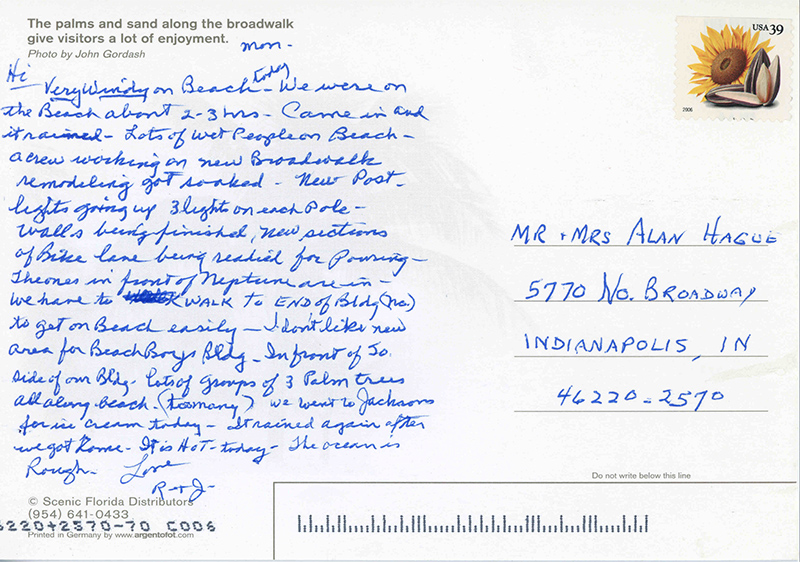 The palms and sand along the broadwalk
give visitors a lot of enjoyment.
Photo by John Gordash
mon-
Hi
Very Windy on Beach today - We were on
the Beach about 2-3 hrs - Came in and
it rained - Lots of Wet People on Beach -
a crew working on new Broadwalk
remodeling got soaked - New Post-
lights going up 3 lights on each Pole -
Walls being finished, new sections
of Bike lane being readied for Pouring -
Theones in front of Neptune are in -
we have to WALK TO END of Bldg (No)
to get on Beach easily - I don't like new
area for Beach Boys Bldg - In front of So.
side of our Bldg - lots of groups of 3 Palm trees
all along beach - (too many) we went to Jacksons
for ice cream today - It rained again after
we got home - It is HOT - today - The ocean is
Rough - Love
R + J -
© Scenic Florida Distributors
(954) 641-0433
6220+2570-70 C006
Printed in Germany by www.argentofot.com
USA 39
2006
MR + MRS ALAN HAGUE
5770 No. BROADWAY
INDIANAPOLIS, IN
46220-2570
Do not write below this line